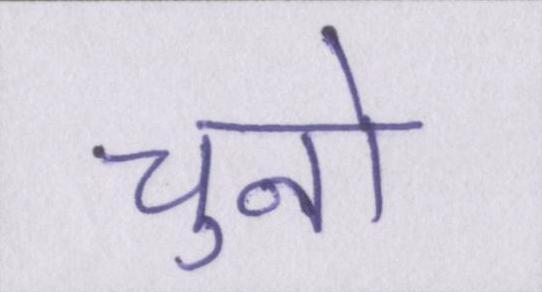 चुनो